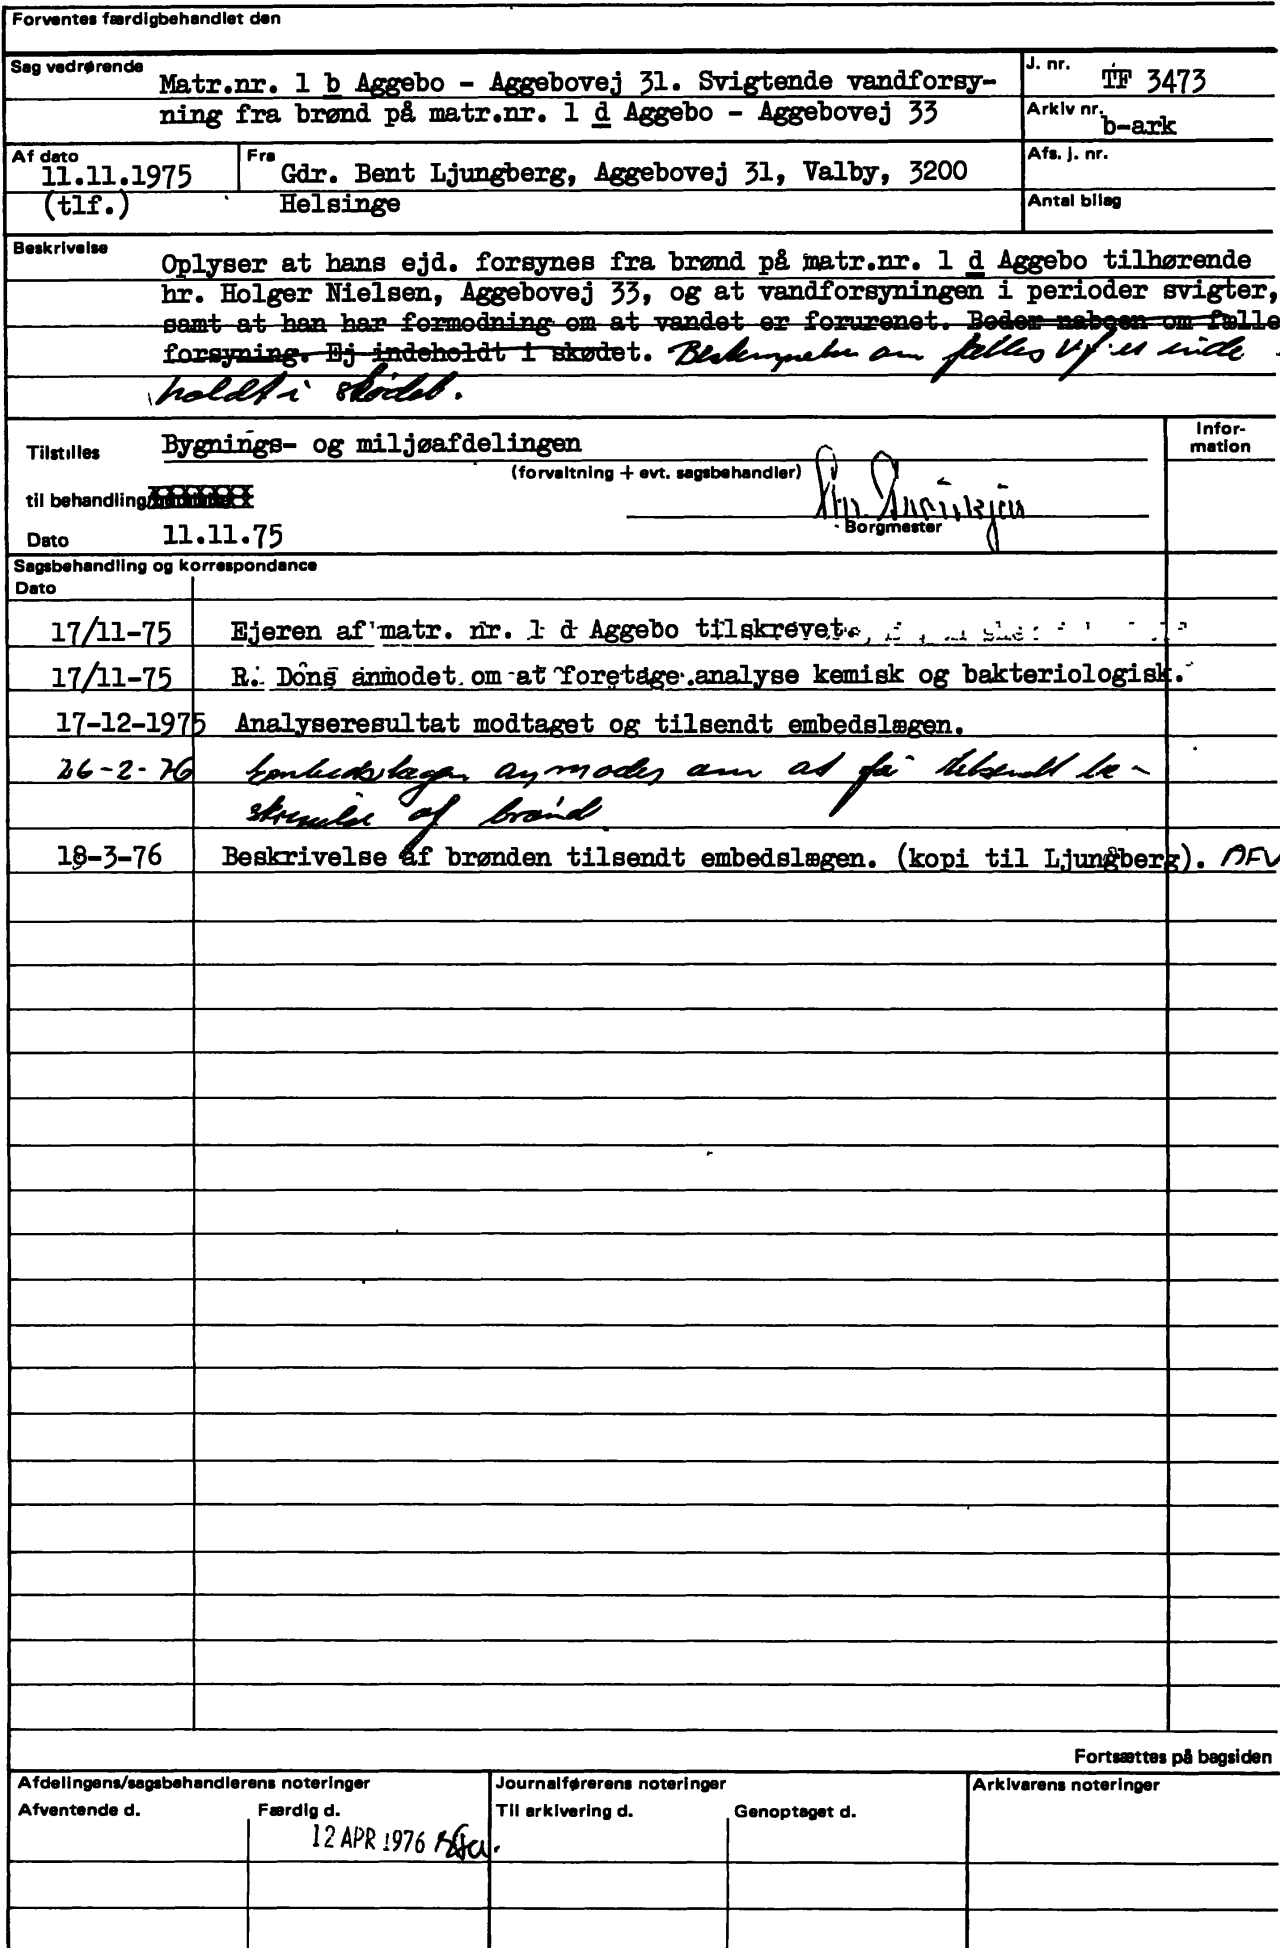 Forventes færdigbehandlet den
Sag vedrørende Matr.nr. 1 b Aggebo - Aggebovej 31. Svigtende vandforsy-
ning fra brønd på matr.nr. 1 d Aggebo - Aggebovej 33
J. nr. TF 3473
Arkiv nr. b-ark
Af dato 11.11.1975
(tlf.)
Fra Gdr. Bent Ljungberg, Aggebovej 31, Valby, 3200
Helsinge
Afs. j. nr.
Antal bilag
Beskrivelse
Oplyser at hans ejd. forsynes fra brønd på matr.nr. 1 d Aggebo tilhørende
hr. Holger Nielsen, Aggebovej 33, og at vandforsyningen i perioder svigter,
samt at han har formodning om at vandet er forurenet. Beder naboen om fælle
forsyning. Ej indeholdt i skødet. Bestemmelse om fælles vf. er inde
holdt i skødet.
Tilstilles Bygnings- og miljøafdelingen
(forvaltning + evt. sagsbehandler)
Infor-
mation
til behandling
Borgmester
Dato 11.11.75
Sagsbehandling og korrespondance
Dato
17/11-75 Ejeren af matr. nr. 1 d Aggebo tilskrevet
17/11-75 R. Dons anmodet om at foretage analyse kemisk og bakteriologisk.
17-12-1975 Analyseresultat modtaget og tilsendt embedslægen.
26-2-76 Embedslægen anmoder om at få tilsendt be-
skrivelse af brønd
18-3-76 Beskrivelse af brønden tilsendt embedslægen. (kopi til Ljungberg). AFV
Fortsættes på bagsiden
Afdelingens/sagsbehandlerens noteringer
Journalførerens noteringer
Arkivarens noteringer
Afventende d.
Færdig d.
Til arkivering d.
Genoptaget d.
12 APR 1976